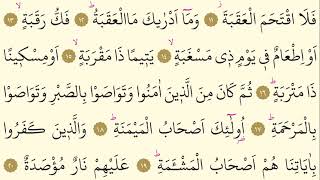 فَلَا اقْتَحَمَ الْعَقَبَةَۘ ﴿١١﴾ وَمَٓا اَدْرٰيكَ مَاالْعَقَبَةُۜ ﴿١٢﴾ فَكُّ رَقَبَةٍۙ ﴿١٣﴾
اَوْ اِطْعَامٌ ف۪ي يَوْمٍ ذ۪ي مَسْغَبَةٍۙ ﴿١٤﴾ يَت۪يمًا ذَا مَقْرَبَةٍۙ ﴿١٥﴾ اَوْمِسْك۪ينًا
ذَا مَتْرَبَةٍۜ ﴿١٦﴾ ثُمَّ كَانَ مِنَ الَّذ۪ينَ اٰمَنُوا وَتَوَاصَوْا بِالصَّبْرِ وَتَوَاصَوْا
بِالْمَرْحَمَةِۜ ﴿١٧﴾ اُو۬لٰٓئِكَ اَصْحَابُ الْمَيْمَنَةِۜ ﴿١٨﴾ وَالَّذ۪ينَ كَفَرُوا
بِاٰيَاتِنَا هُمْ اَصْحَابُ الْمَشْـَٔمَةِۜ ﴿١٩﴾ عَلَيْهِمْ نَارٌ مُؤْصَدَةٌ ﴿٢٠﴾